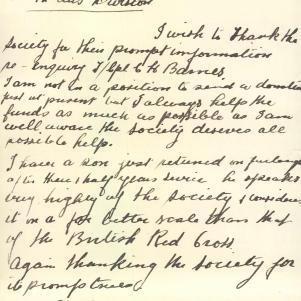 Division
I wish to thank the
Society for their prompt information
re - Enquiry T/Cpl C H Barnes.
I am not in a position to send a donation
just at present but I always help the
funds as much as possible as I am
well aware the Society deserves all
possible help.
I have a son just returned on furlough
after three & half years service he speaks
very highly of the Society & considers
it on a far better scale than that
of the British Red Cross.
Again thanking the Society for
its promptness